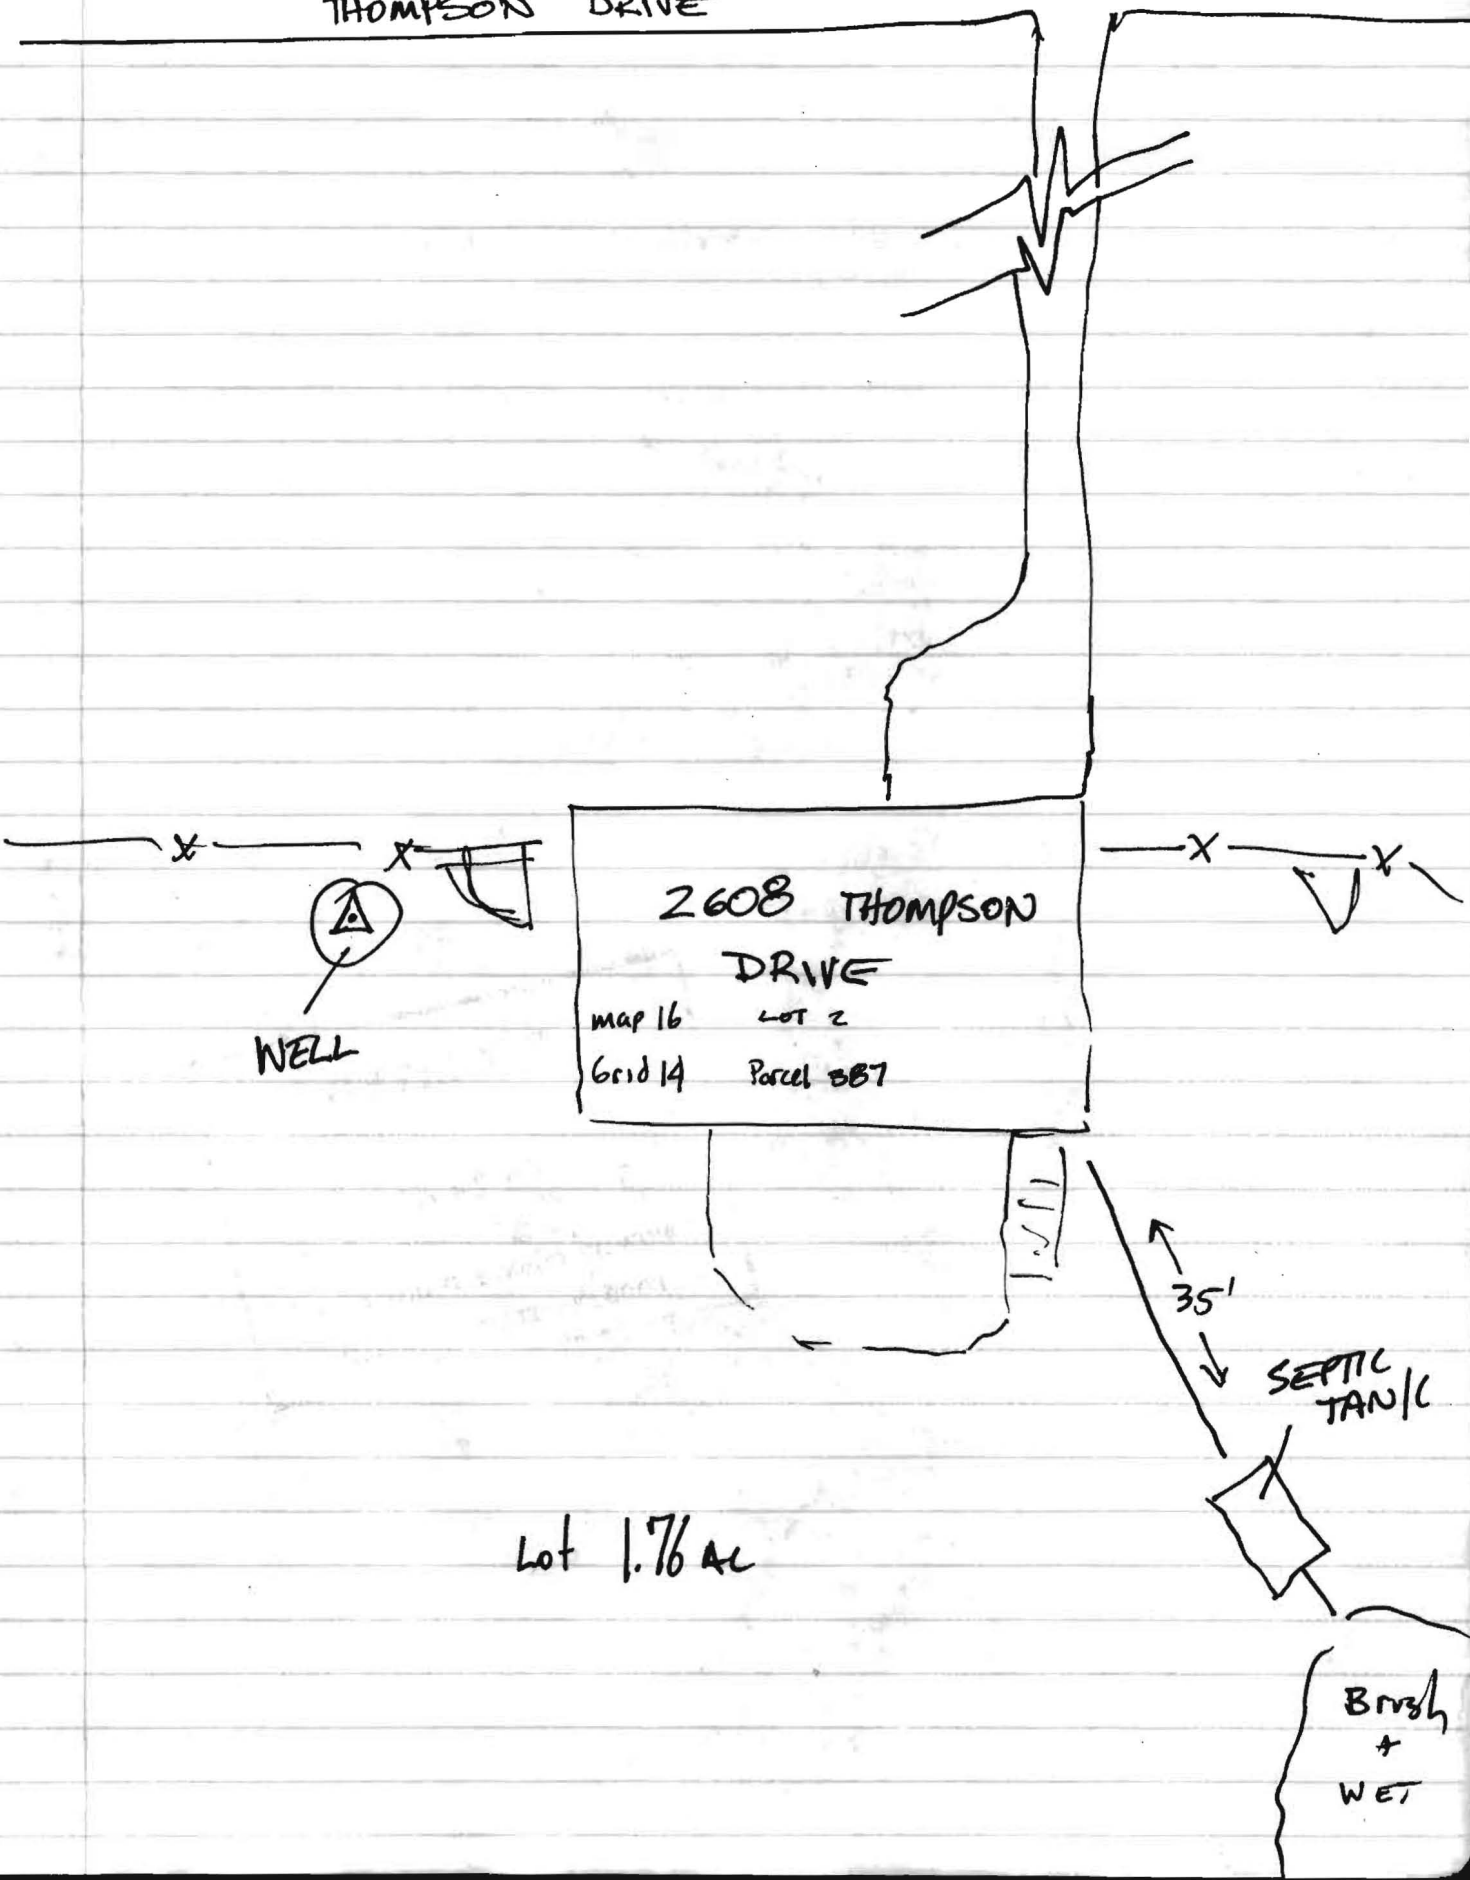 THOMPSON DRIVE
2608 THOMPSON
DRIVE
map 16 LOT 2
Grid 14 Parcel 387
WELL
35'
SEPTIC
TANK
Lot 1.76 AC
Brush
+
WET